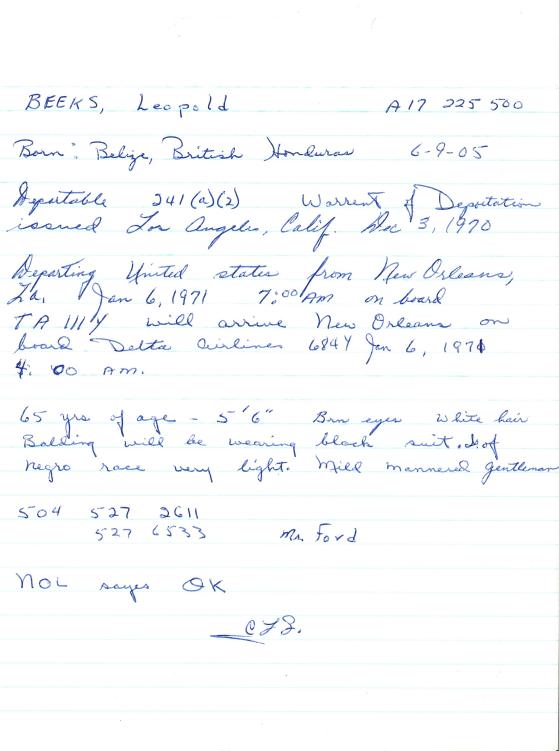 BEEKS, Leopold A17 225 500
Born: Belize, British Honduras 6-9-05
Deportable 241(a)(2) Warrent of Deportation
issued Los Angeles, Calif. Dec 3, 1970
Departing United states from New Orleans,
La, Jan 6, 1971 7:00 AM on board
TA 111Y will arrive New Orleans on
board Delta Airlines 684Y Jan 6, 1971
4:00 AM.
65 yrs of age - 5'6" Brn eyes white hair
Balding will be wearing black suit. Is of
negro race very light. Mild mannered gentleman
504 527 2611
527 6533 Mr. Ford
NOL sayes OK